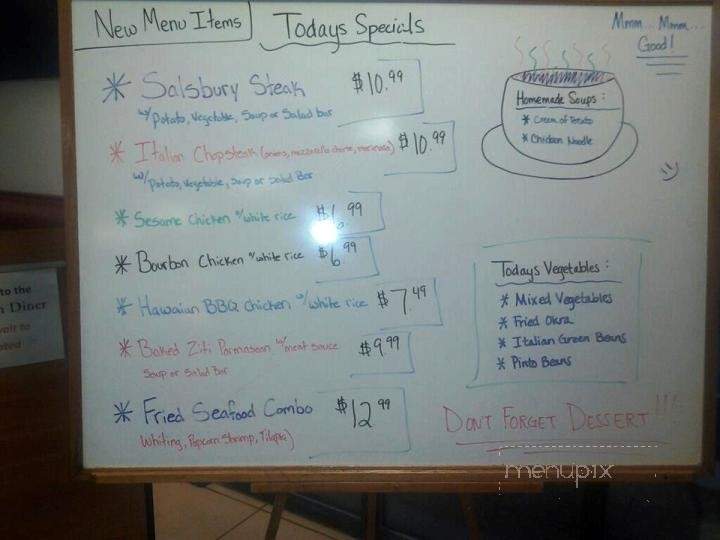 New Menu Items
Todays Specials
Salsbury Steak $10.99
w/ Potato, Vegetable, Soup or Salad bar
Italian Chopsteak (onions, mozzarella cheese, marinara) $10.99
w/ Potato, Vegetable, Soup or Salad Bar
Sesame Chicken w/ white rice $6.99
Bourbon Chicken w/ white rice $6.99
Hawaiian BBQ Chicken w/ white rice $7.49
Baked Ziti Parmasean w/ meat sauce $9.99
Soup or Salad Bar
Fried Seafood Combo $12.99
Whiting, Popcorn Shrimp, Tilapia)
Mmm.. Mmm...
Good!
Homemade Soups:
Cream of Potato
Chicken Noodle
Todays Vegetables:
Mixed Vegetables
Fried Okra
Italian Green Beans
Pinto Beans
DONT FORGET DESSERT!!!
to the
Diner
wait to
menupix